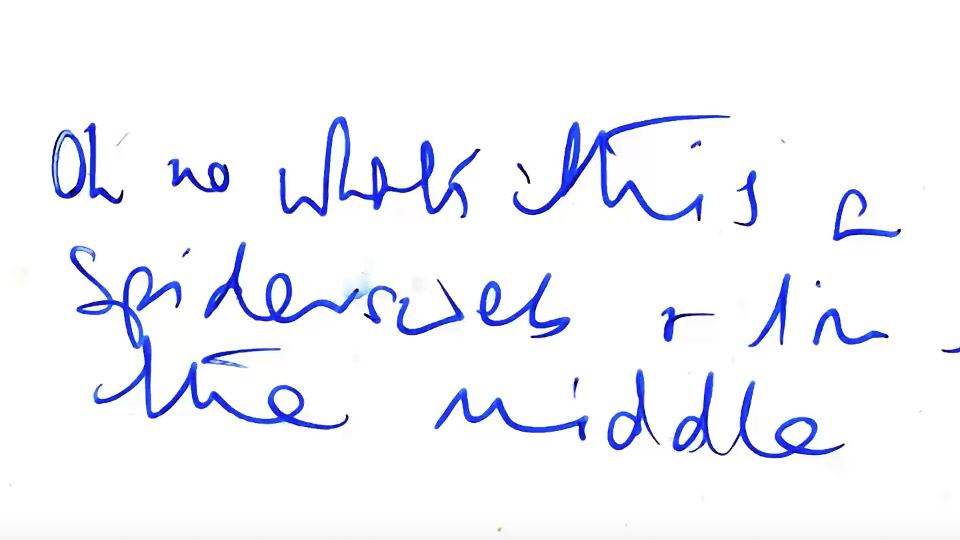 Oh no what's this a
spidersweb + I'm
the middle